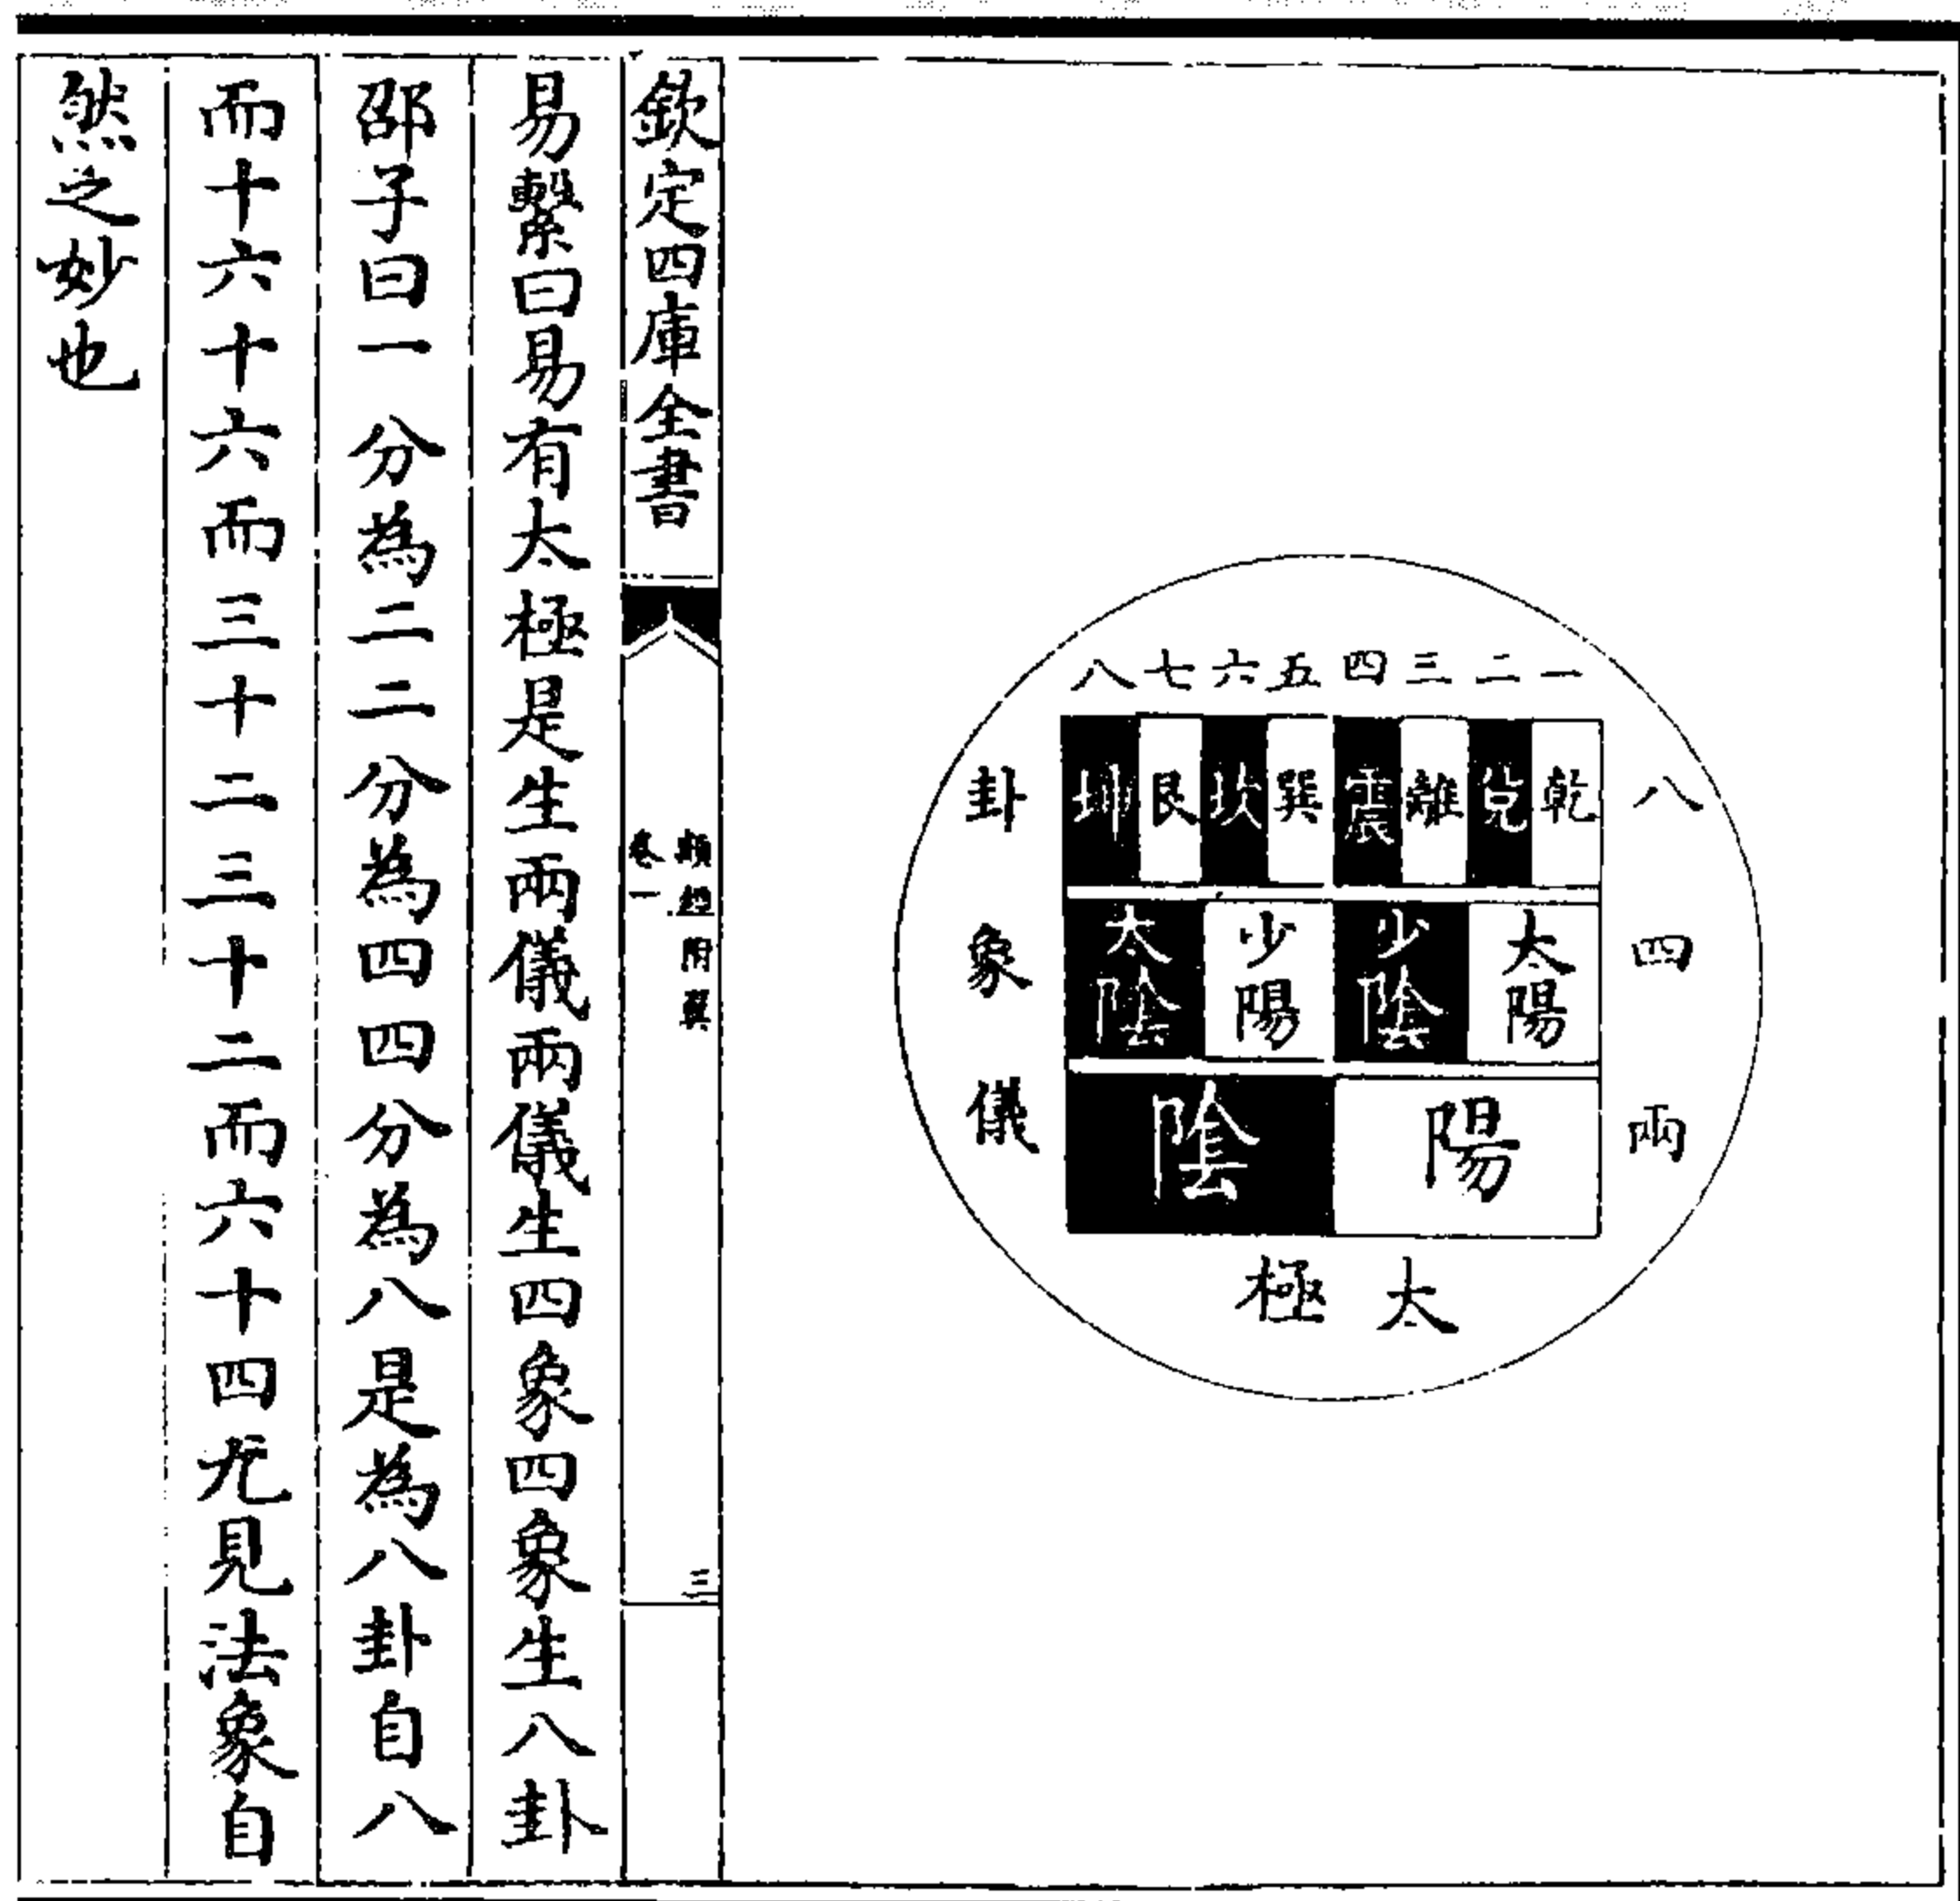 一二三四五六七八
乾兌離震巽坎艮坤
八卦
太陽少陰少陽太陰
四象
陽陰
兩儀
太極
欽定四庫全書
類經附翼
卷一
三
易繫曰易有太極是生兩儀兩儀生四象四象生八卦
邵子曰一分為二二分為四四分為八是為八卦自八
而十六十六而三十二三十二而六十四尤見法象自
然之妙也